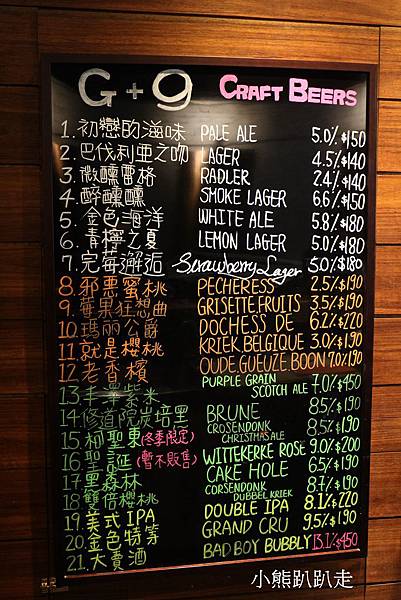 G+9 CRAFT BEERS
1. 初戀的滋味 PALE ALE 5.0% $150
2. 巴伐利亞之吻 LAGER 4.5% $140
3. 微醺雷格 RADLER 2.4% $140
4. 醉醺醺 SMOKE LAGER 6.6% $150
5. 金色海洋 WHITE ALE 5.8% $180
6. 青檸之夏 LEMON LAGER 5.0% $180
7. 完莓邂逅 Strawberry Lager 5.0% $180
8. 邪惡蜜桃 PECHERESS 2.5% $190
9. 莓果狂想曲 GRISETTE FRUITS 3.5% $190
10. 瑪麗公爵 DOCHESS DE 6.2% $220
11 就是櫻桃 KRIEK BELGIQUE 3.0% $190
12 老香檳 OUDE GUEUZE BOON 7.0% $190
13 紫米 PURPLE GRAIN SCOTCH ALE 7.0% $450
14. 修道院炭培黑 BRUNE 8.5% $190
15. 柳聖東(冬季限定) CROSENDONK CHRISTMAS ALE 8.5% $190
16. 聖誕(暫不販售) WITTEKERKE ROSE 9.0% $200
17. 黑森林 CAKE HOLE 6.5% $190
18. 雙倍櫻桃 CORSENDONK DUBBEL KRIEK 8.7% $190
19. 美式IPA DOUBLE IPA 8.1% $220
20. 金色特等 GRAND CRU 9.5% $190
21. 大賣酒 BAD BOY BUBBLY 13.1% $450
小熊趴趴走